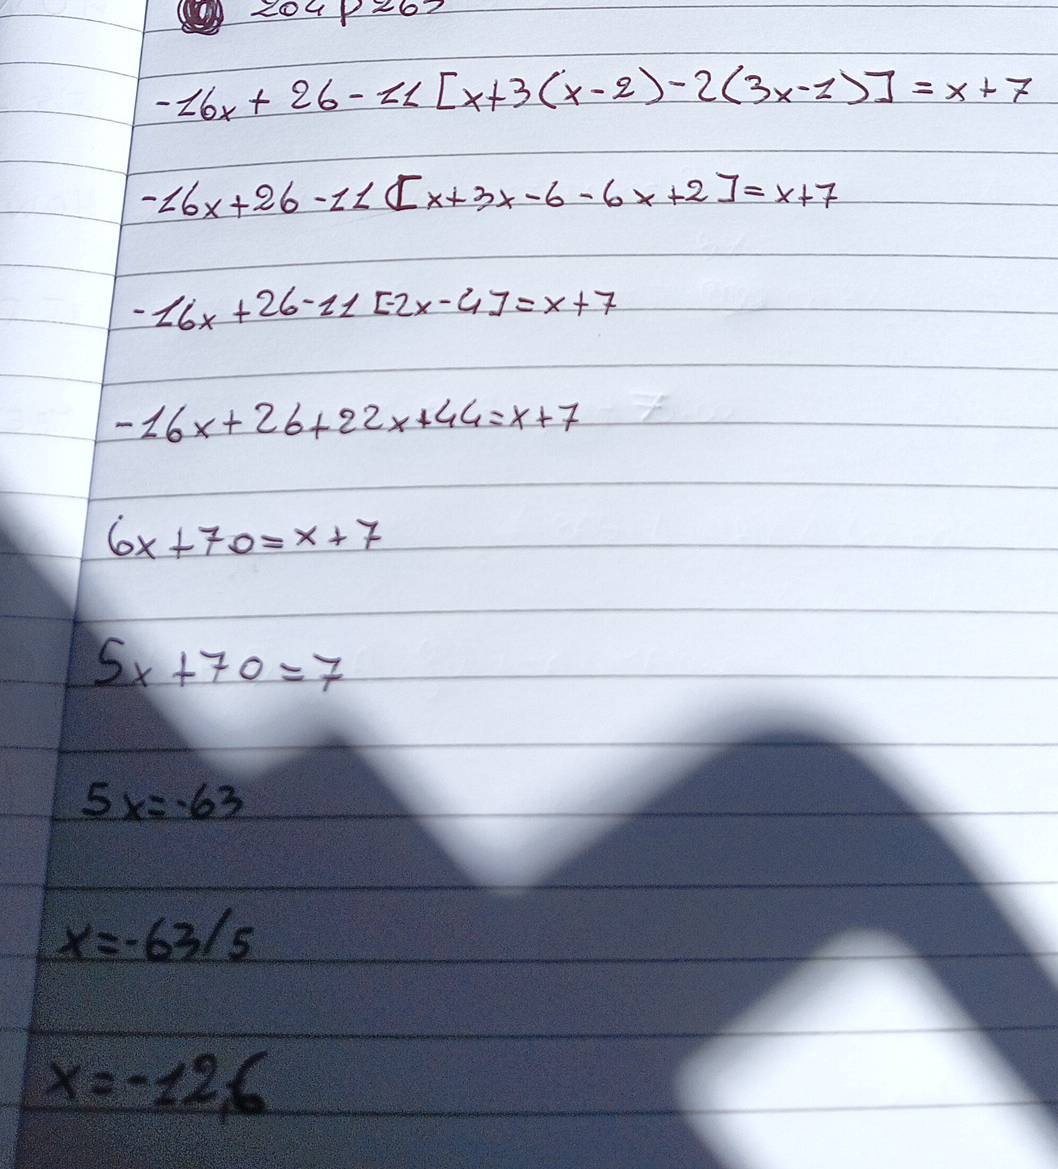 -16x + 26 - 11 [x+3(x-2)-2(3x-1)] = x+7
-16x+26-11 [x+3x-6-6x+2]=x+7
-16x+26-11 [-2x-4]=x+7
-16x+26+22x+44=x+7
6x+70=x+7
5x+70=7
5x=-63
x=-63/5
x=-12,6